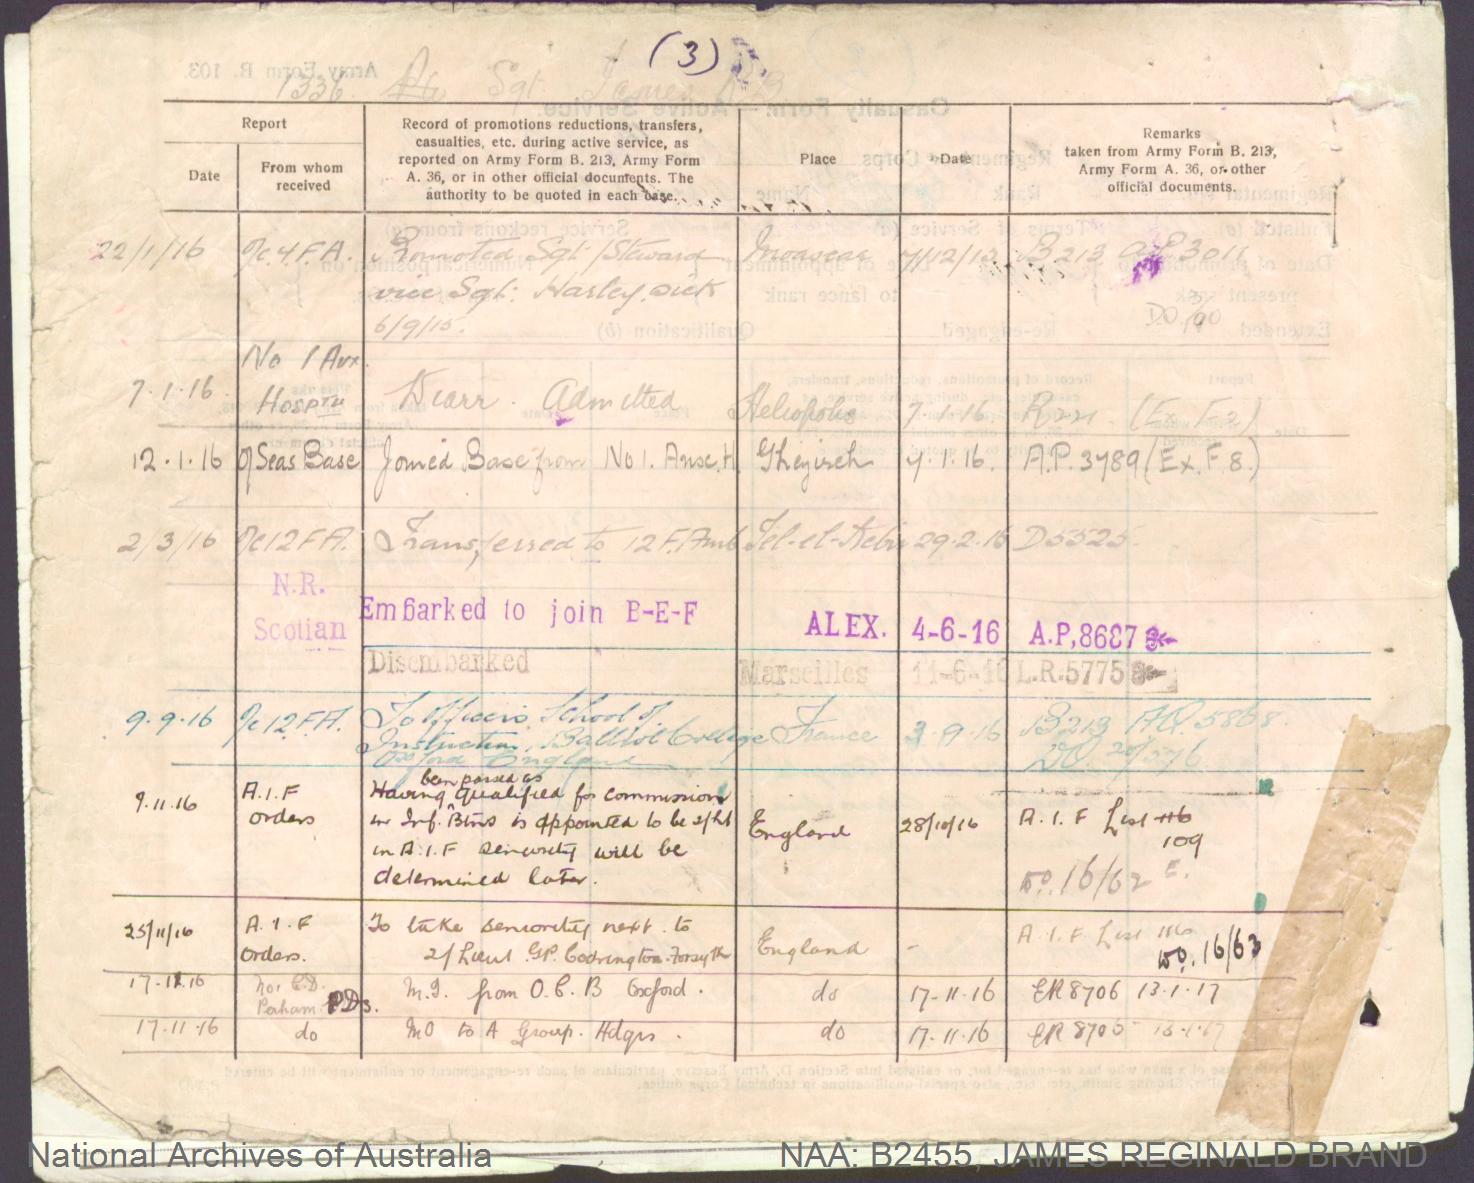 (3)
1336. Sgt James R B
Report
Date
From whom received
Record of promotions reductions, transfers, casualties, etc. during active service, as reported on Army Form B. 213, Army Form A. 36, or in other official documents. The authority to be quoted in each case.
Place
Date
Remarks taken from Army Form B. 213, Army Form A. 36, or other official documents.
22/1/16 O/c. 4 F.A. Promoted Sgt/Steward Moascar B213 A.P. 3011
vice Sgt. Harley sick
6/9/15. D.O.
No 1 Aux.
7.1.16 Hosptl Diarr. Admitted Heliopolis 7.1.16. (Ex. F2)
12.1.16 O/Seas Base Joined Base from No 1. Ghezireh 7.1.16. A.P. 3789 (Ex. F. 8.)
2/3/16 O/c 12 F.A. Transferred to 12 F. Amb Tel-el-Kebir 29.2.16 D5525.
N.R.
Scotian Embarked to join B-E-F ALEX. 4-6-16 A.P,8687
Disembarked Marseilles 11-6-16 L.R.5775
9.9.16 O/c 12.F.A. To Officers School of
Instruction, Balliol College France 3.9.16 B213 A.P. 5868.
Oxford England
been passed as
9.11.16 A.I.F Having qualified for commission
orders in Inf. Btns is appointed to be 2/Lt England 28/10/16 A.I.F List 116
in A.I.F seniority will be 109
determined later. DO. 16/62
25/11/16 A.I.F To take seniority next to England - A.I.F List 116
Orders. 2/Lieut G.P. Codrington-Forsyth DO. 16/63
17.11.16 No 1 C.D. M.I. from O.C.B Oxford. do 17-11-16 ER 8706 13-1-17
Perham PDs.
17.11.16 do MO to A Group. Hdqrs. do 17.11.16 ER 8706 13-1-17
National Archives of Australia NAA: B2455, JAMES REGINALD BRAND